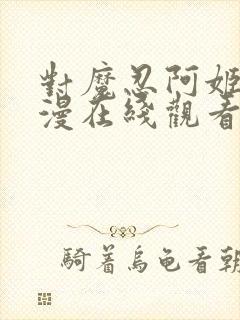 對魔忍阿姬
漫在綫觀看
騎着烏龜看朝